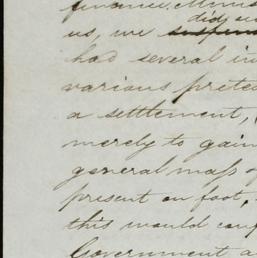 finance, Minis
did su
us, we suspend
had several in
various pretex
a settlement,
merely to gain
general mass o
present on foot,
this would conf
Government a